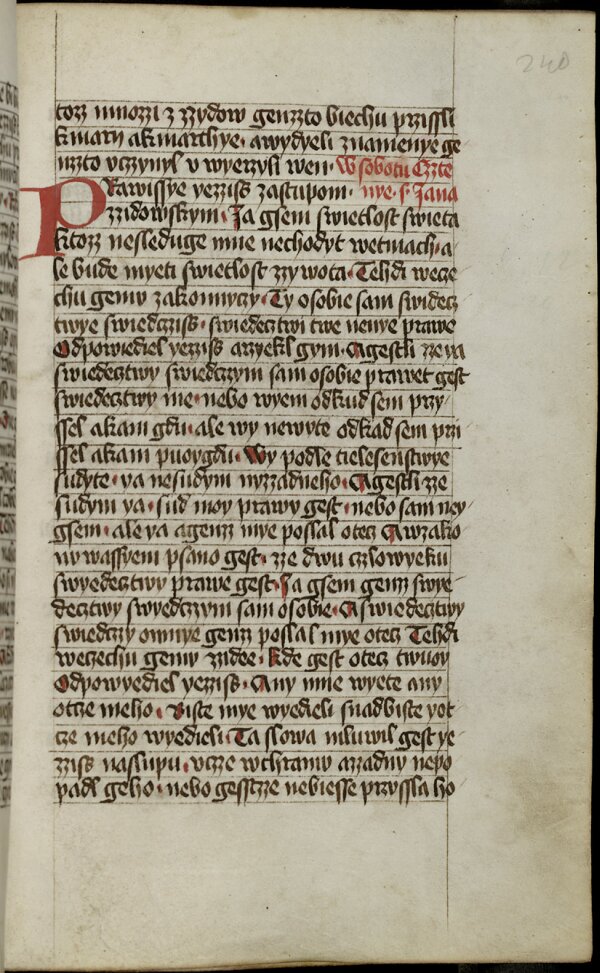 240
torz mnozzi z zzydow genzzto biechu przissli
kmarzi akmarthye · awydyeli znamenye ge
nzzto vczynyl v wyerzyli wen · Wsobotu Czte
PRawissye yezziss zastupom · nye · s · Jana
zzidowskym · Ja gsem swietlost swieta
ktorz nesleduge mne nechodyt wetmach · a
le bude myeti swietlost zzywota · Tehdi wecze
chu gemu zakonnyczy · Ty osobie sam swidecz
twye swiedcziss · swiedecztwi twe nenye prawe
Odpowiediel yezziss arzyekl gym · Agestli zze ya
swiedecztwy swiedczym sam osobie prawet gest
swiedecztwy me · nebo wyem odkud sem przy
ssel akam gdu · ale wy newyte odkad sem pri
ssel akam puoygdu · Wy podle tielesenstwye
sudyte · ya nesudym nyzzadneho · Agestli zze
sudym ya · sud moy prawy gest · nebo sam ney
gsem · ale ya agenz mye poslal otecz Awzako
nywassyem psano gest · zze dwu czlowyeku
swyedecztwy prawe gest · Ja gsem genz swye
decztwy swyedczym sam osobie · A swiedecztwy
swiedczy omnye genz poslal mye otecz Tehdi
weczechu gemu zzidee · Kde gest otecz twuoy
Odpowyediel yezziss · Any mne wyete any
otcze meho · Biste mye wyedieli snadbiste yot
cze meho wyedieli · Ta slowa mluwil gest ye
zziss naslupu · vcze wchramu azzadny nepo
padl geho · nebo gesstzze nebiesse przyssla ho